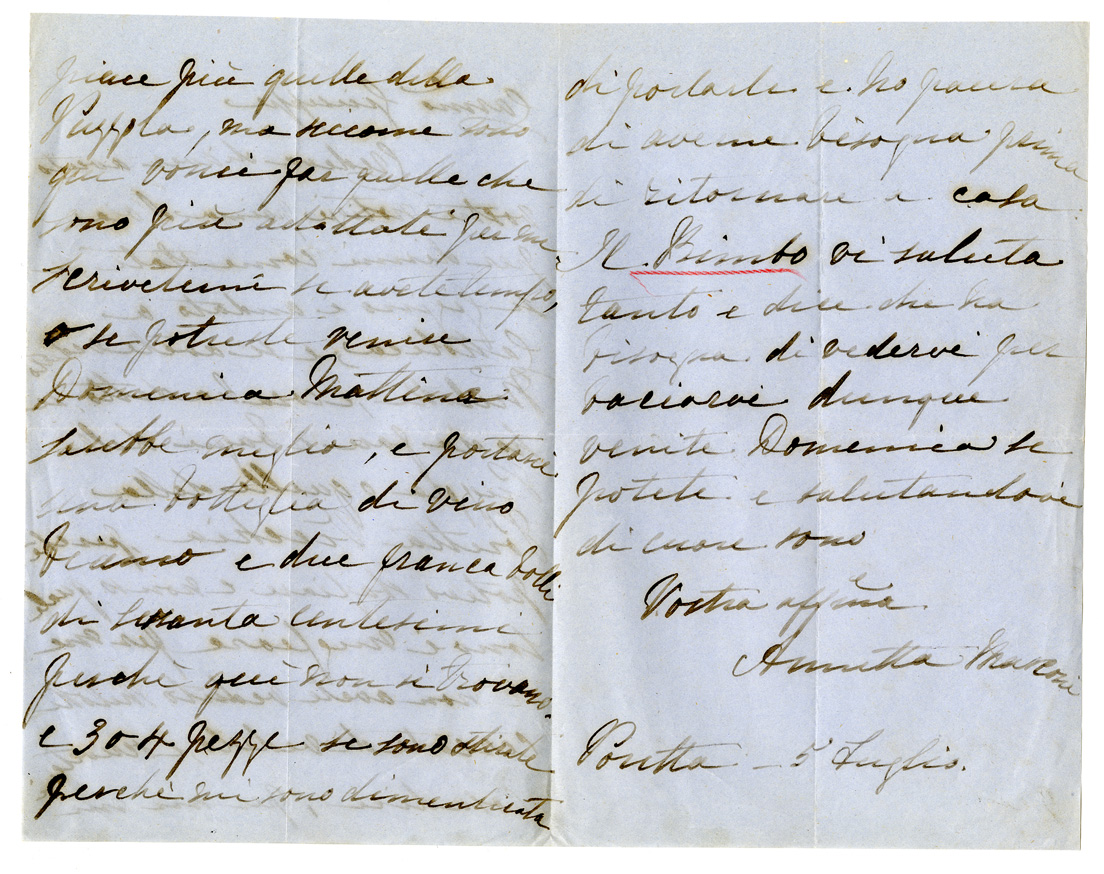 piace più quelle della
Puzzola, ma siccome sono
qui vorrei far quelle che
sono più adattate per me
scrivetemi se avete tempo,
o se potreste venire
Domenica Mattina
sarebbe meglio, e portare
una bottiglia di vino
bianco e due franca bolli
di sessanta centesimi
perchè quì non si trovano.
e 3 o 4 pezze se sono stirate
perchè mi sono dimenticata
di portarle e ho paura
di averne bisogno prima
di ritornare a casa
Il Bimbo vi saluta
tanto e dice che ha
bisogno di vedervi per
baciarvi dunque
venite Domenica se
potete e salutandovi
di cuore sono
Vostra affma
Annetta Marconi
Poretta - 5 Luglio.